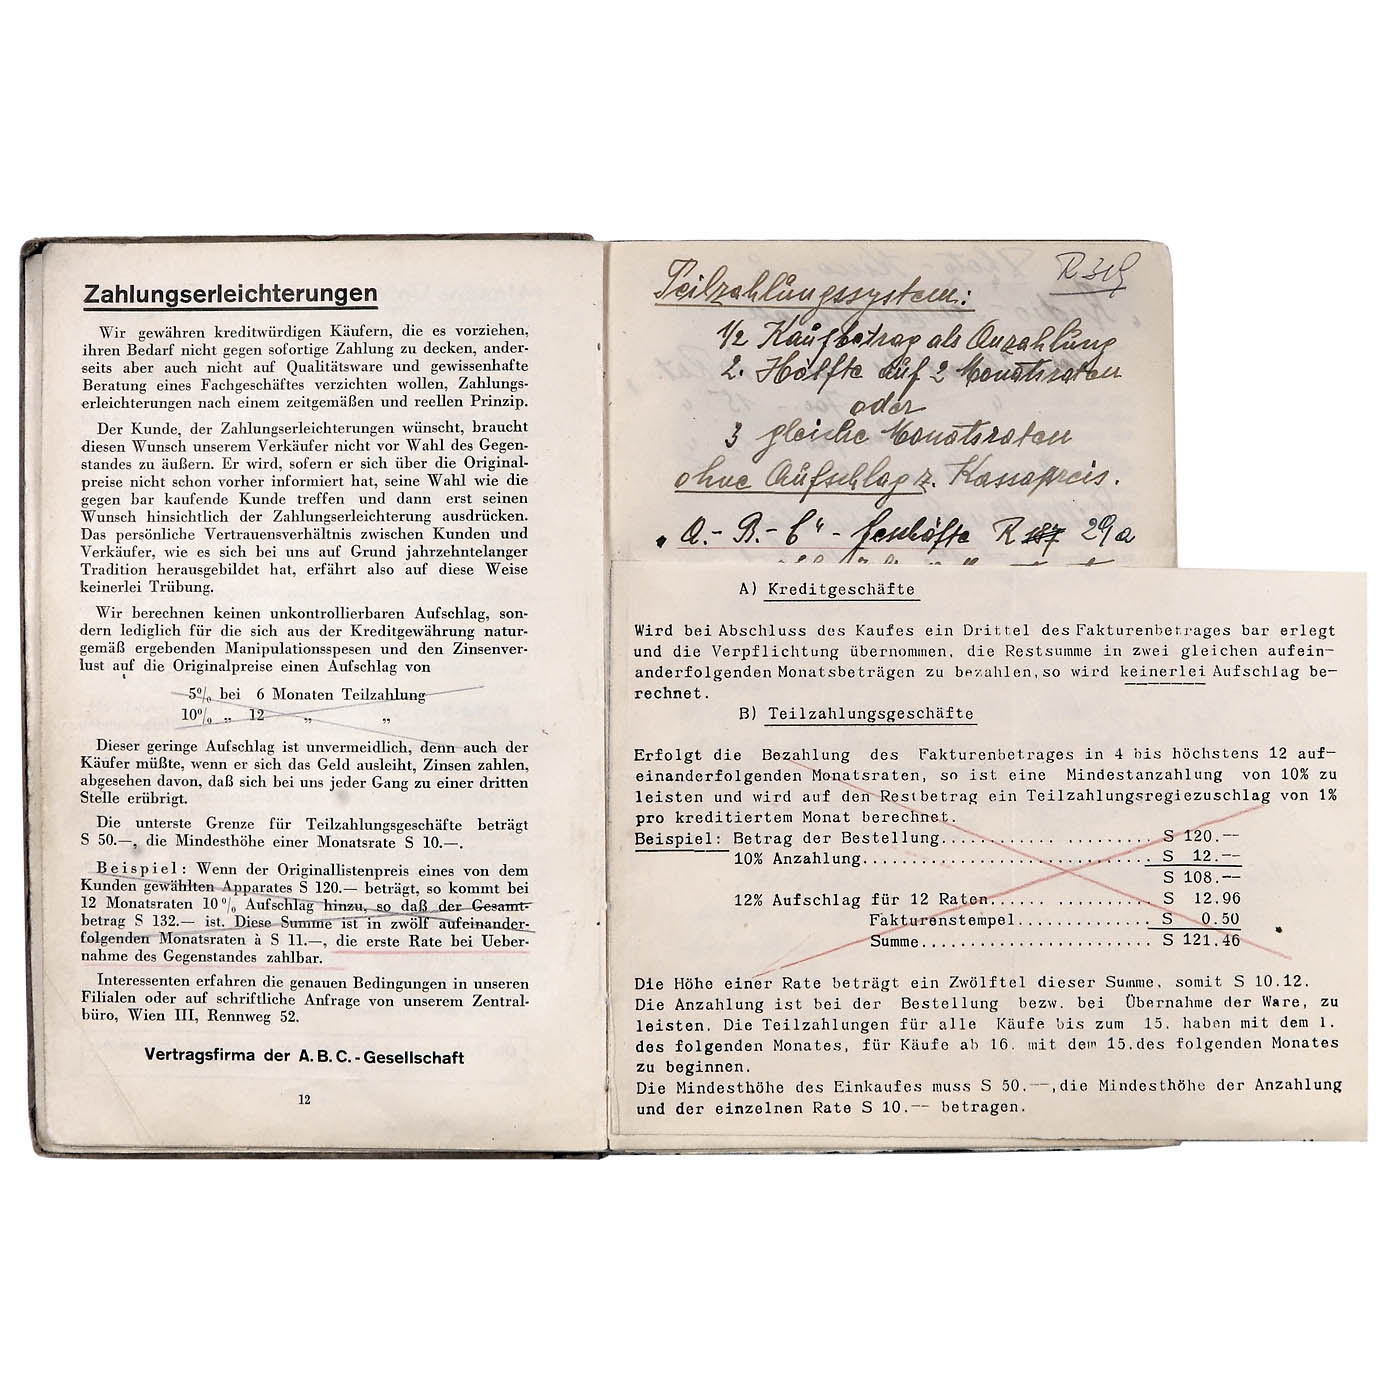 Zahlungserleichterungen
Wir gewähren kreditwürdigen Käufern, die es vorziehen,
ihren Bedarf nicht gegen sofortige Zahlung zu decken, ander-
seits aber auch nicht auf Qualitätsware und gewissenhafte
Beratung eines Fachgeschäftes verzichten wollen, Zahlungs-
erleichterungen nach einem zeitgemäßen und reellen Prinzip.
Der Kunde, der Zahlungserleichterungen wünscht, braucht
diesen Wunsch unserem Verkäufer nicht vor Wahl des Gegen-
standes zu äußern. Er wird, sofern er sich über die Original-
preise nicht schon vorher informiert hat, seine Wahl wie die
gegen bar kaufende Kunde treffen und dann erst seinen
Wunsch hinsichtlich der Zahlungserleichterung ausdrücken.
Das persönliche Vertrauensverhältnis zwischen Kunden und
Verkäufer, wie es sich bei uns auf Grund jahrzehntelanger
Tradition herausgebildet hat, erfährt also auf diese Weise
keinerlei Trübung.
Wir berechnen keinen unkontrollierbaren Aufschlag, son-
dern lediglich für die sich aus der Kreditgewährung natur-
gemäß ergebenden Manipulationsspesen und den Zinsenver-
lust auf die Originalpreise einen Aufschlag von
5% bei 6 Monaten Teilzahlung
10% „ 12 „ „
Dieser geringe Aufschlag ist unvermeidlich, denn auch der
Käufer müßte, wenn er sich das Geld ausleiht, Zinsen zahlen,
abgesehen davon, daß sich bei uns jeder Gang zu einer dritten
Stelle erübrigt.
Die unterste Grenze für Teilzahlungsgeschäfte beträgt
S 50.—, die Mindesthöhe einer Monatsrate S 10.—.
Beispiel: Wenn der Originallistenpreis eines von dem
Kunden gewählten Apparates S 120.— beträgt, so kommt bei
12 Monatsraten 10% Aufschlag hinzu, so daß der Gesamt-
betrag S 132.— ist. Diese Summe ist in zwölf aufeinander-
folgenden Monatsraten à S 11.—, die erste Rate bei Ueber-
nahme des Gegenstandes zahlbar.
Interessenten erfahren die genauen Bedingungen in unseren
Filialen oder auf schriftliche Anfrage von unserem Zentral-
büro, Wien III, Rennweg 52.
Vertragsfirma der A.B.C.-Gesellschaft
12
Teilzahlungssystem:
1/2 Kaufbetrag als Anzahlung
2. Hälfte auf 2 Monatsraten
oder
3 gleiche Monatsraten
ohne Aufschlag z. Kassapreis.
„A.-B.-C“-Geschäfte R 29a
A) Kreditgeschäfte
Wird bei Abschluss des Kaufes ein Drittel des Fakturenbetrages bar erlegt
und die Verpflichtung übernommen, die Restsumme in zwei gleichen aufein-
anderfolgenden Monatsbeträgen zu bezahlen, so wird keinerlei Aufschlag be-
rechnet.
B) Teilzahlungsgeschäfte
Erfolgt die Bezahlung des Fakturenbetrages in 4 bis höchstens 12 auf-
einanderfolgenden Monatsraten, so ist eine Mindestanzahlung von 10% zu
leisten und wird auf den Restbetrag ein Teilzahlungsregiezuschlag von 1%
pro kreditiertem Monat berechnet.
Beispiel: Betrag der Bestellung.................... S 120.--
10% Anzahlung.............................. S 12.--
S 108.--
12% Aufschlag für 12 Raten................ S 12.96
Fakturenstempel.............. S 0.50
Summe........................ S 121.46
Die Höhe einer Rate beträgt ein Zwölftel dieser Summe, somit S 10.12.
Die Anzahlung ist bei der Bestellung bezw. bei Übernahme der Ware, zu
leisten. Die Teilzahlungen für alle Käufe bis zum 15. haben mit dem 1.
des folgenden Monates, für Käufe ab 16. mit dem 15.des folgenden Monates
zu beginnen.
Die Mindesthöhe des Einkaufes muss S 50.--,die Mindesthöhe der Anzahlung
und der einzelnen Rate S 10.-- betragen.